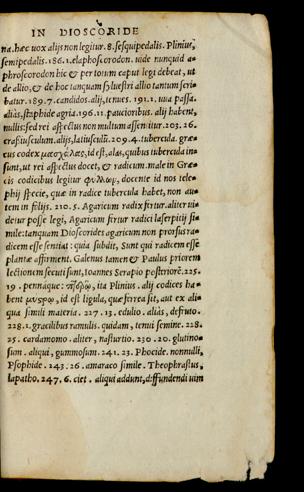 IN DIOSCORIDE
na. hæc uox alijs non legitur. 8. sesquipedalis. Plinius,
semipedalis. 186. 1. elaphoscorodon. uide nunquid a-
phroscorodon hic & per totum caput legi debeat, ut
de allio, & de hoc tanquam syluestri allio tantum scri-
batur. 189. 7. candidos. alij, tenues. 191. 1. uua passa.
aliàs, staphide agria. 196. 11. paucioribus. alij habent,
nullis: sed rei aspectus non multum assentitur. 203. 26.
crassiusculum. alijs, latiusculū. 209. 4. tubercula. græ-
cus codex μασχάλας, id est, alas, quibus tubercula in-
sunt, ut rei aspectus docet, & radicum male in Græ-
cis codicibus legitur docente id nos tele-
phij specie, quæ in radice tubercula habet, non au-
tem in folijs. 210. 5. Agaricum radix fertur. aliter ui-
detur posse legi, Agaricum fertur radici laserpitij si-
mile: tanquam Dioscorides agaricum non prorsus ra-
dicem esse sentiat: quia subdit, Sunt qui radicem esse
plantæ affirment. Galenus tamen & Paulus priorem
lectionem secuti sunt, Ioannes Serapio posteriorē. 225.
19. pennáque: ita Plinius. alij codices ha-
bent id est ligula, quæ ferrea sit, aut ex ali-
qua simili materia. 227. 13. edulio. aliàs, defruto.
228. 1. gracilibus ramulis. quidam, tenui semine. 228.
25. cardamomo. aliter, nasturtio. 230. 20. glutino-
sum. aliqui, gummosum. 241. 23. Phocide. nonnulli,
Psophide. 243. 26. amaraco simile. Theophrastus,
lapatho. 247. 6. ciet. aliqui addunt, diffundendi uim